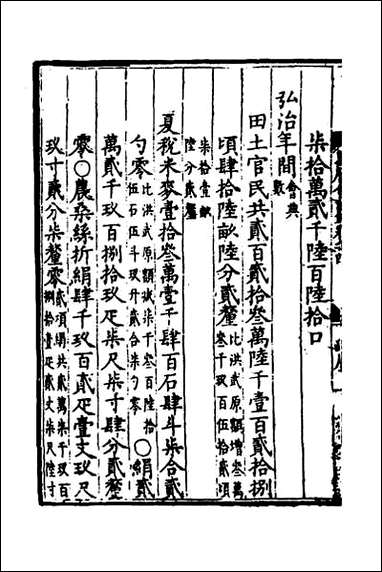 柒拾萬貳千陸百陸拾口
弘治年間會典數
田土官民共貳百貳拾叁萬陸千壹百貳拾捌
頃肆拾陸畝陸分貳釐比洪武原額增叁萬叁千玖百伍拾貳頃
柒拾壹畝陸分貳釐
夏稅米麥壹拾叁萬壹千肆百石肆斗柒合貳
勺零比洪武原額減柒千叁百陸拾伍石伍斗玖升貳合柒勺零○絹貳
萬貳千玖百捌拾玖疋柒尺柒寸肆分貳釐
零○農桑絲折絹肆千玖百貳疋壹丈玖尺
玖寸貳分柒釐零貳項塲共貳萬柒千玖百捌拾壹疋貳丈柒尺陸寸